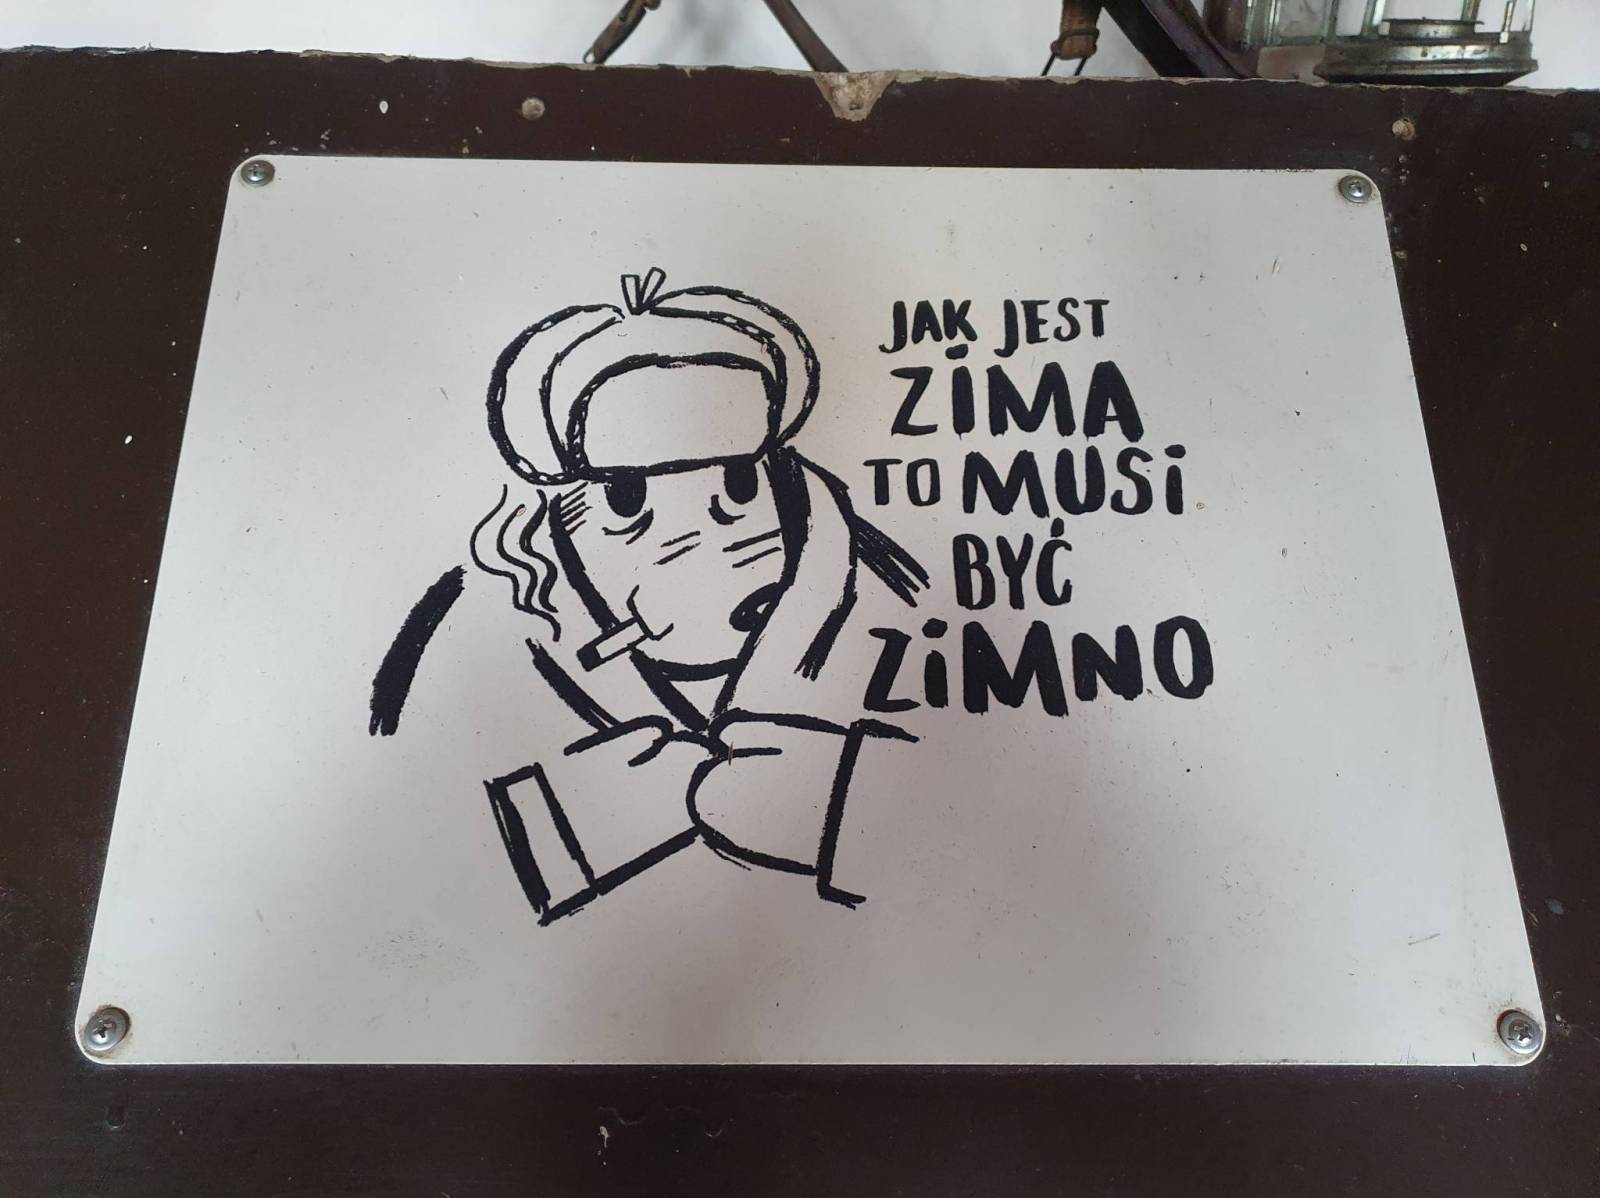 JAK JEST
ZIMA
TO MUSI
BYĆ
ZIMNO